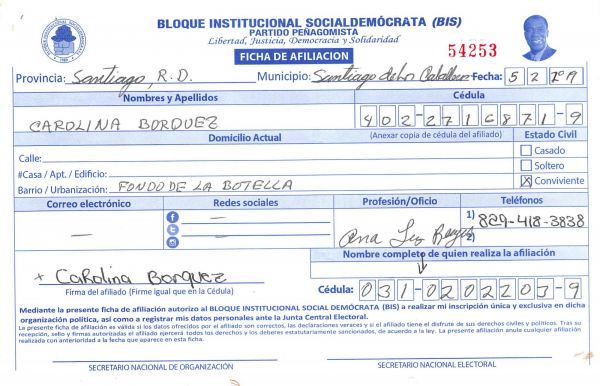 BLOQUE INSTITUCIONAL SOCIALDEMÓCRATA (BIS)
PARTIDO PEÑAGOMISTA
Libertad, Justicia, Democracia y Solidaridad
FICHA DE AFILIACION
54253
Provincia: Santiago, R.D. Municipio: Santiago de los Caballeros Fecha: 5 2 2019
Nombres y Apellidos Cédula
CAROLINA BORQUEZ 402-2716871-9
Domicilio Actual (Anexar copia de cédula del afiliado) Estado Civil
Calle: Casado
#Casa / Apt. / Edificio: Soltero
Barrio / Urbanización: FONDO DE LA BOTELLA X Conviviente
Correo electrónico Redes sociales Profesión/Oficio Teléfonos
1) 829-418-3838
2)
Ana Reyes
Nombre completo de quien realiza la afiliación
+ Carolina Borquez
Firma del afiliado (Firme igual que en la Cédula) Cédula: 031-0202203-9
Mediante la presente ficha de afiliación autorizo al BLOQUE INSTITUCIONAL SOCIAL DEMÓCRATA (BIS) a realizar mi inscripción única y exclusiva en dicha
organización política, así como a registrar mis datos personales ante la Junta Central Electoral.
La presente ficha de afiliación es válida si los datos ofrecidos por el afiliado son correctos, las declaraciones veraces y si el afiliado tiene el disfrute de sus derechos civiles y políticos. Tras su
recepción, sello y firmas autorizadas el afiliado ejercerá todos los derechos y los deberes estatutariamente sancionados, de acuerdo a la ley. La presente afiliación anula cualquier afiliación
realizada con anterioridad a la fecha que aparece en esta ficha.
SECRETARIO NACIONAL DE ORGANIZACIÓN SECRETARIO NACIONAL ELECTORAL